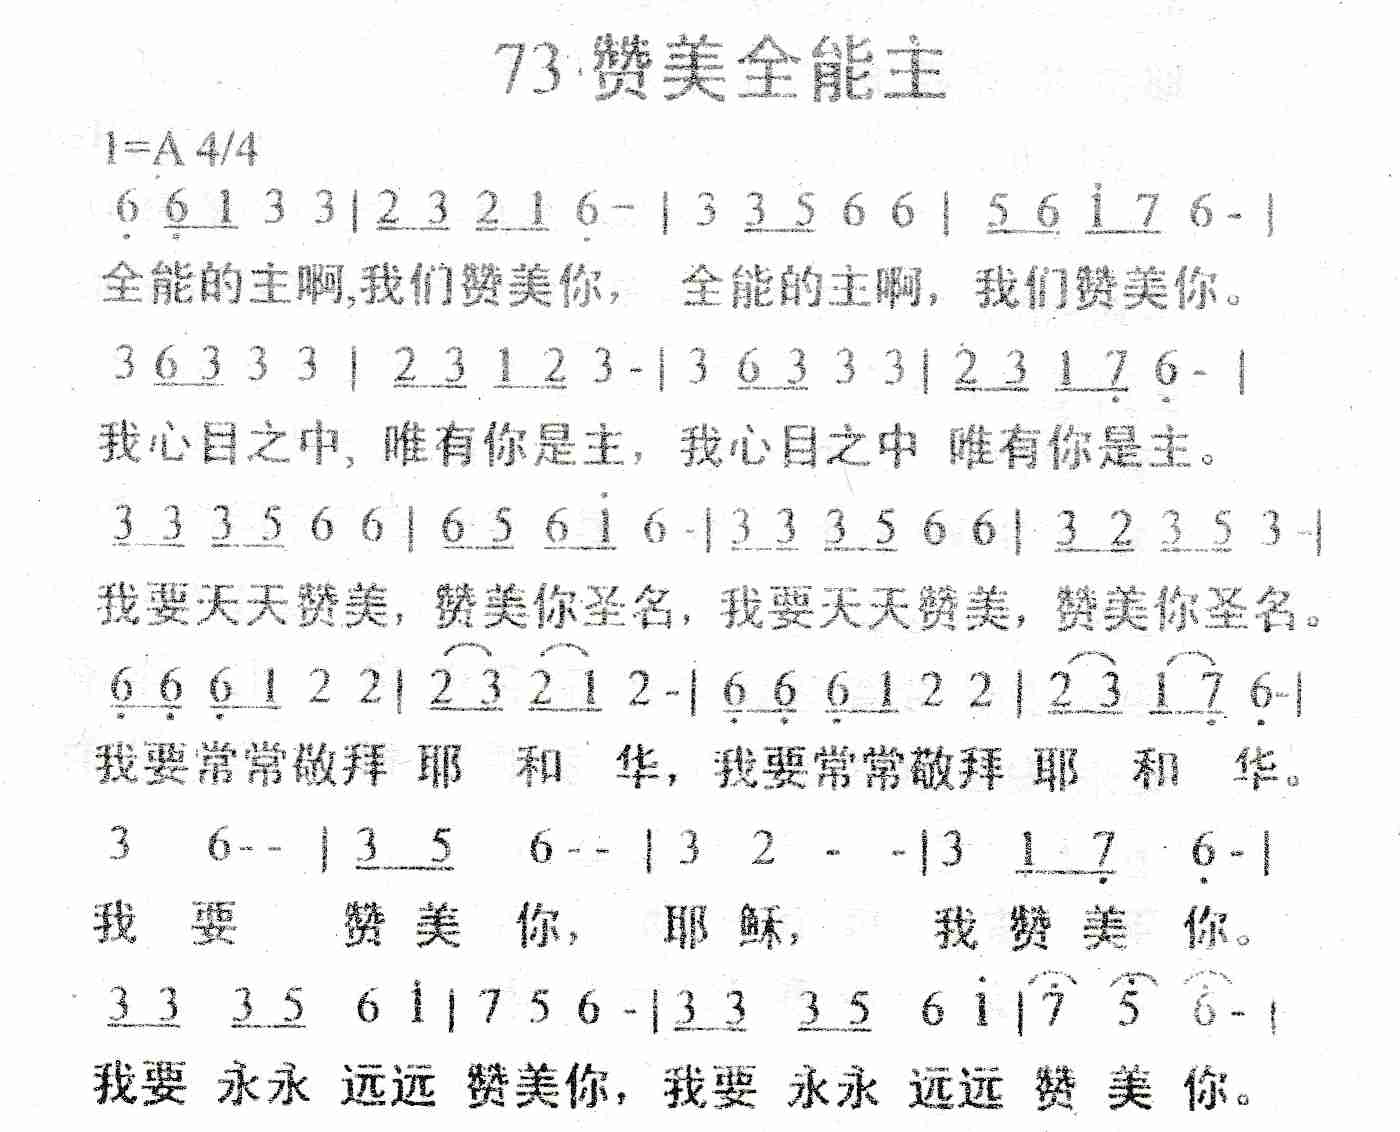 73·赞美全能主
1=A 4/4
6̣ 6̣ 1 3 3 | 2 3 2 1 6̣ - | 3 3 5 6 6 | 5 6 i 7 6 - |
全能的主啊,我们赞美你， 全能的主啊，我们赞美你。
3 6 3 3 3 | 2 3 1 2 3 - | 3 6 3 3 3 | 2 3 1 7̣ 6̣ - |
我心目之中, 唯有你是主，我心目之中 唯有你是主。
3 3 3 5 6 6 | 6 5 6 i 6 - | 3 3 3 5 6 6 | 3 2 3 5 3 - |
我要天天赞美，赞美你圣名，我要天天赞美，赞美你圣名。
6̣ 6̣ 6̣ 1 2 2 | 2 3 2 1 2 - | 6̣ 6̣ 6̣ 1 2 2 | 2 3 1 7̣ 6̣ - |
我要常常敬拜 耶 和 华，我要常常敬拜 耶 和 华。
3 6 - - | 3 5 6 - - | 3 2 - - | 3 1 7̣ 6̣ - |
我 要 赞 美 你， 耶 稣， 我 赞 美 你。
3 3 3 5 6 i | 7 5 6 - | 3 3 3 5 6 i | 7̇ 5̇ 6̇ - |
我要 永永 远远 赞美你，我要 永永 远远 赞 美 你。